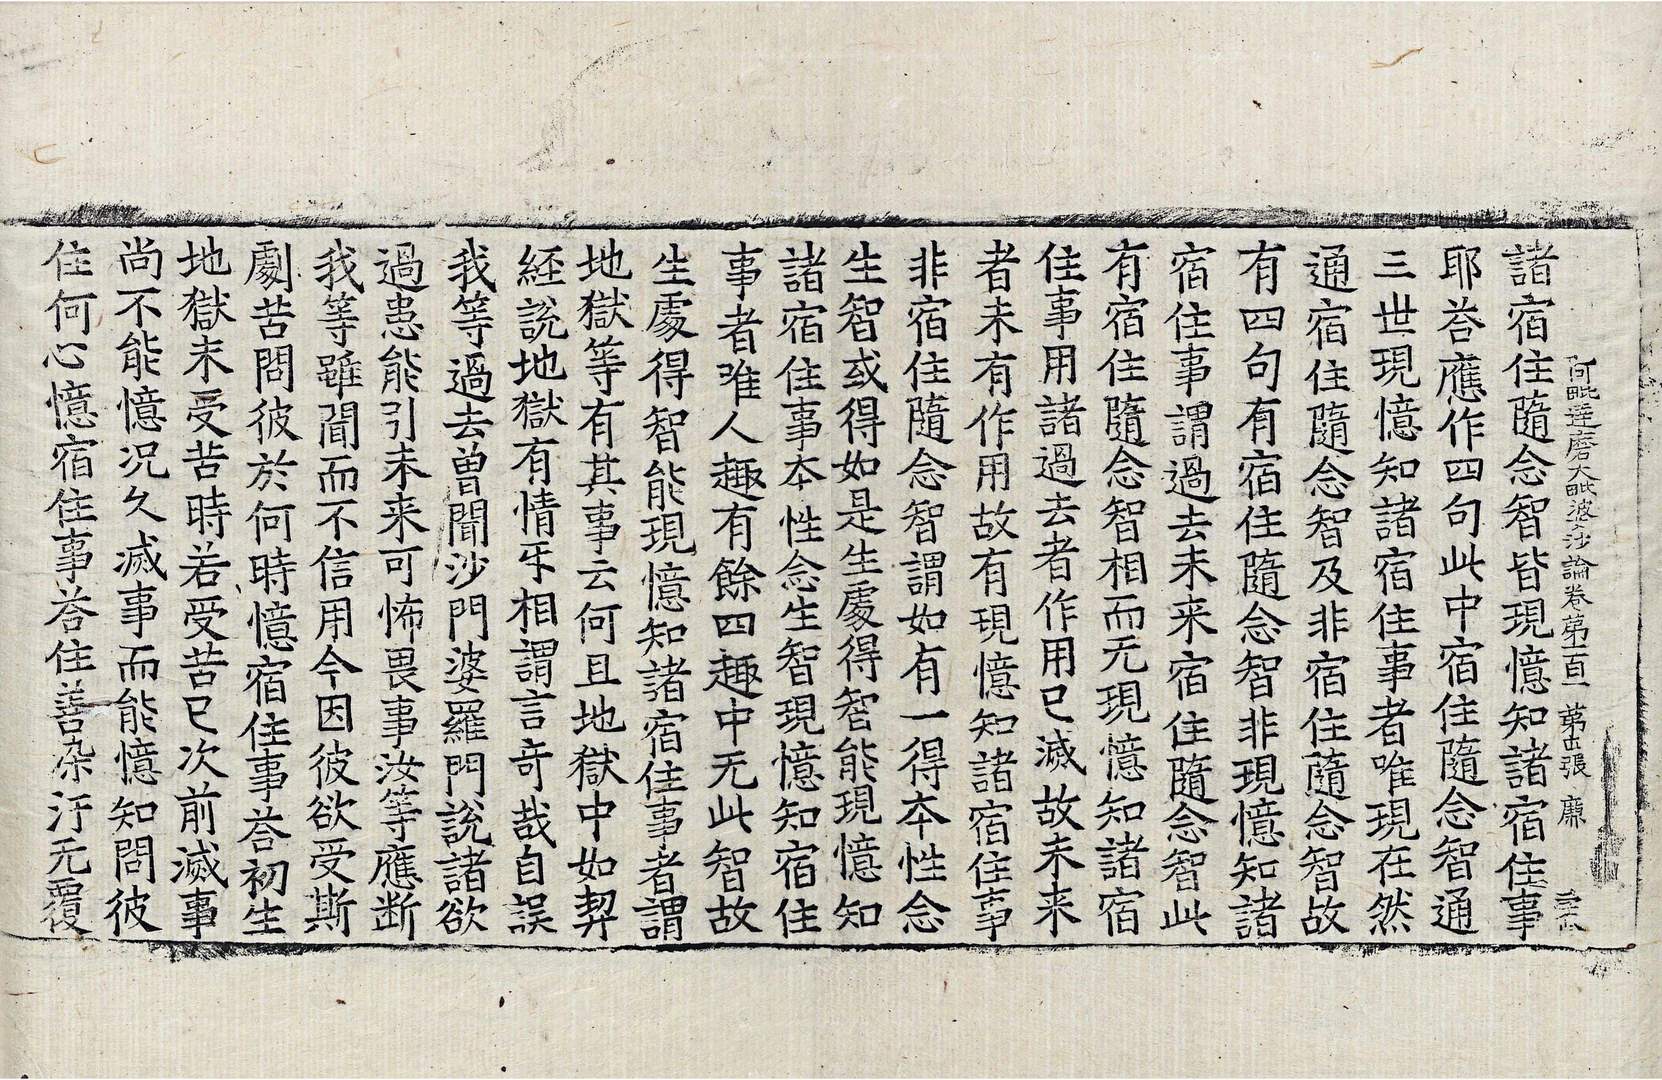 阿毗達磨大毗婆沙論卷第一百一 第十五張 廉
諸宿住隨念智皆現憶知諸宿住事
耶荅應作四句此中宿住隨念智通
三世現憶知諸宿住事者唯現在然
通宿住隨念智及非宿住隨念智故
有四句有宿住隨念智非現憶知諸
宿住事謂過去未来宿住隨念智此
有宿住隨念智相而无現憶知諸宿
住事用諸過去者作用已滅故未来
者未有作用故有現憶知諸宿住事
非宿住隨念智謂如有一得本性念
生智或得如是生處得智能現憶知
諸宿住事本性念生智現憶知宿住
事者唯人趣有餘四趣中无此智故
生處得智能現憶知諸宿住事者謂
地獄等有其事云何且地獄中如契
經說地獄有情乐相謂言奇哉自誤
我等過去曾聞沙門婆羅門說諸欲
過患能引未来可怖畏事汝等應断
我等雖聞而不信用今因彼欲受斯
劇苦問彼於何時憶宿住事荅初生
地獄未受苦時若受苦已次前滅事
尚不能憶況久滅事而能憶知問彼
住何心憶宿住事荅住善染汙无覆